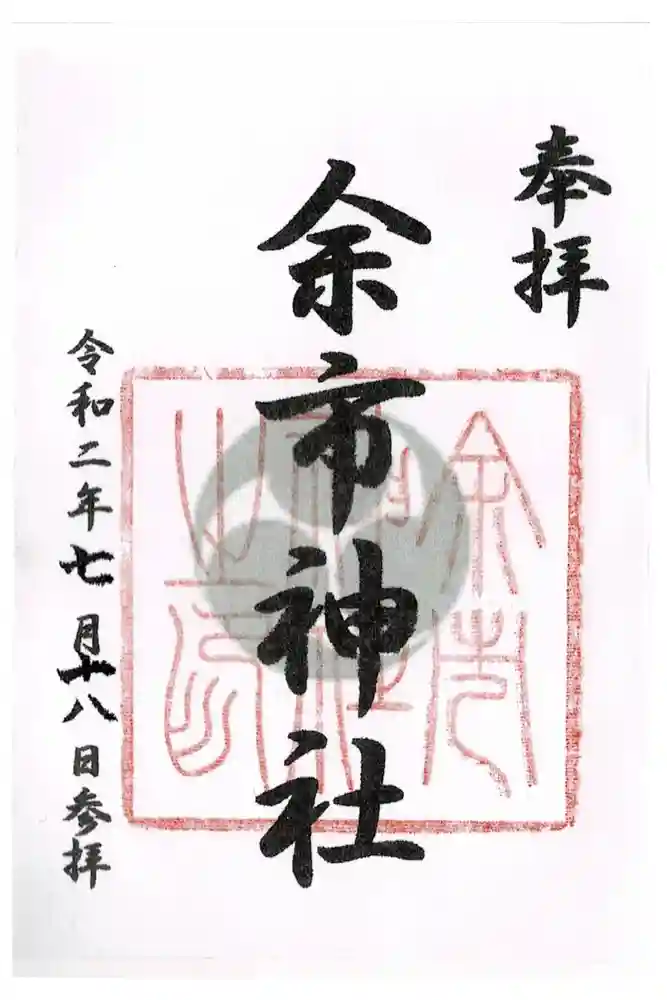 奉拝
余市神社
令和二年七月十八日参拝
余市
神社
之印